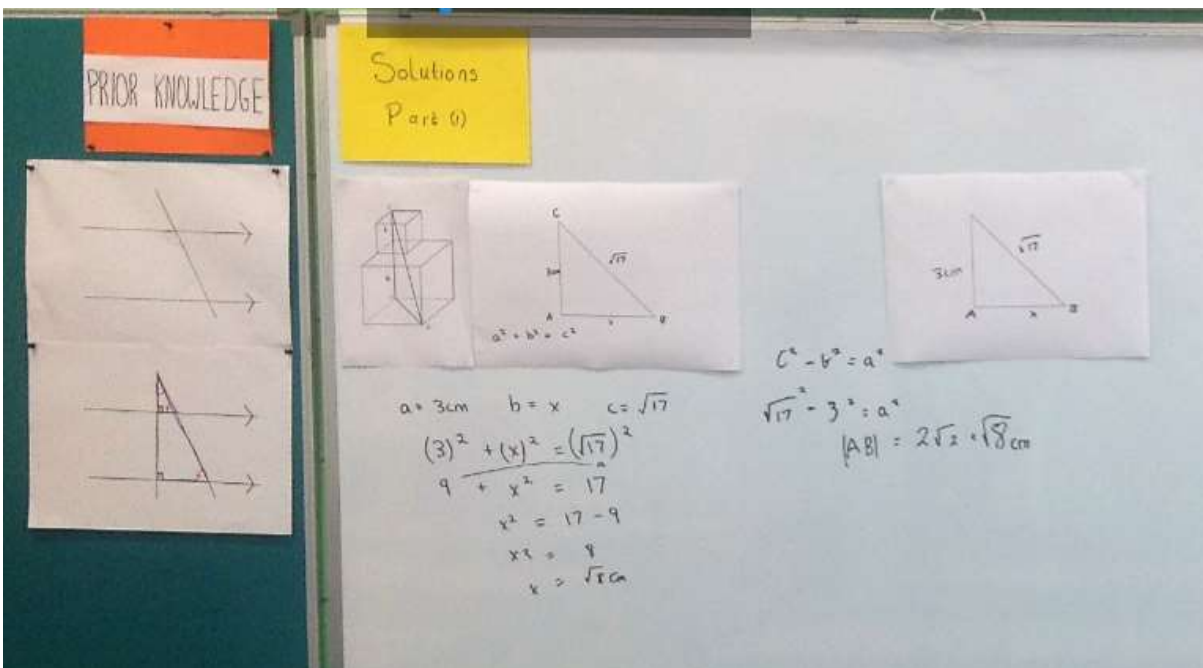 PRIOR KNOWLEDGE
Solutions
Part (1)
C
3cm
√17
A
B
a² + b² = c²
a = 3cm b = x c = √17
(3)² + (x)² = (√17)²
9 + x² = 17
x² = 17 - 9
x² = 8
x = √8 cm
3cm
√17
A x B
c² - b² = a²
√17² - 3² = a²
|AB| = 2√2 = √8 cm